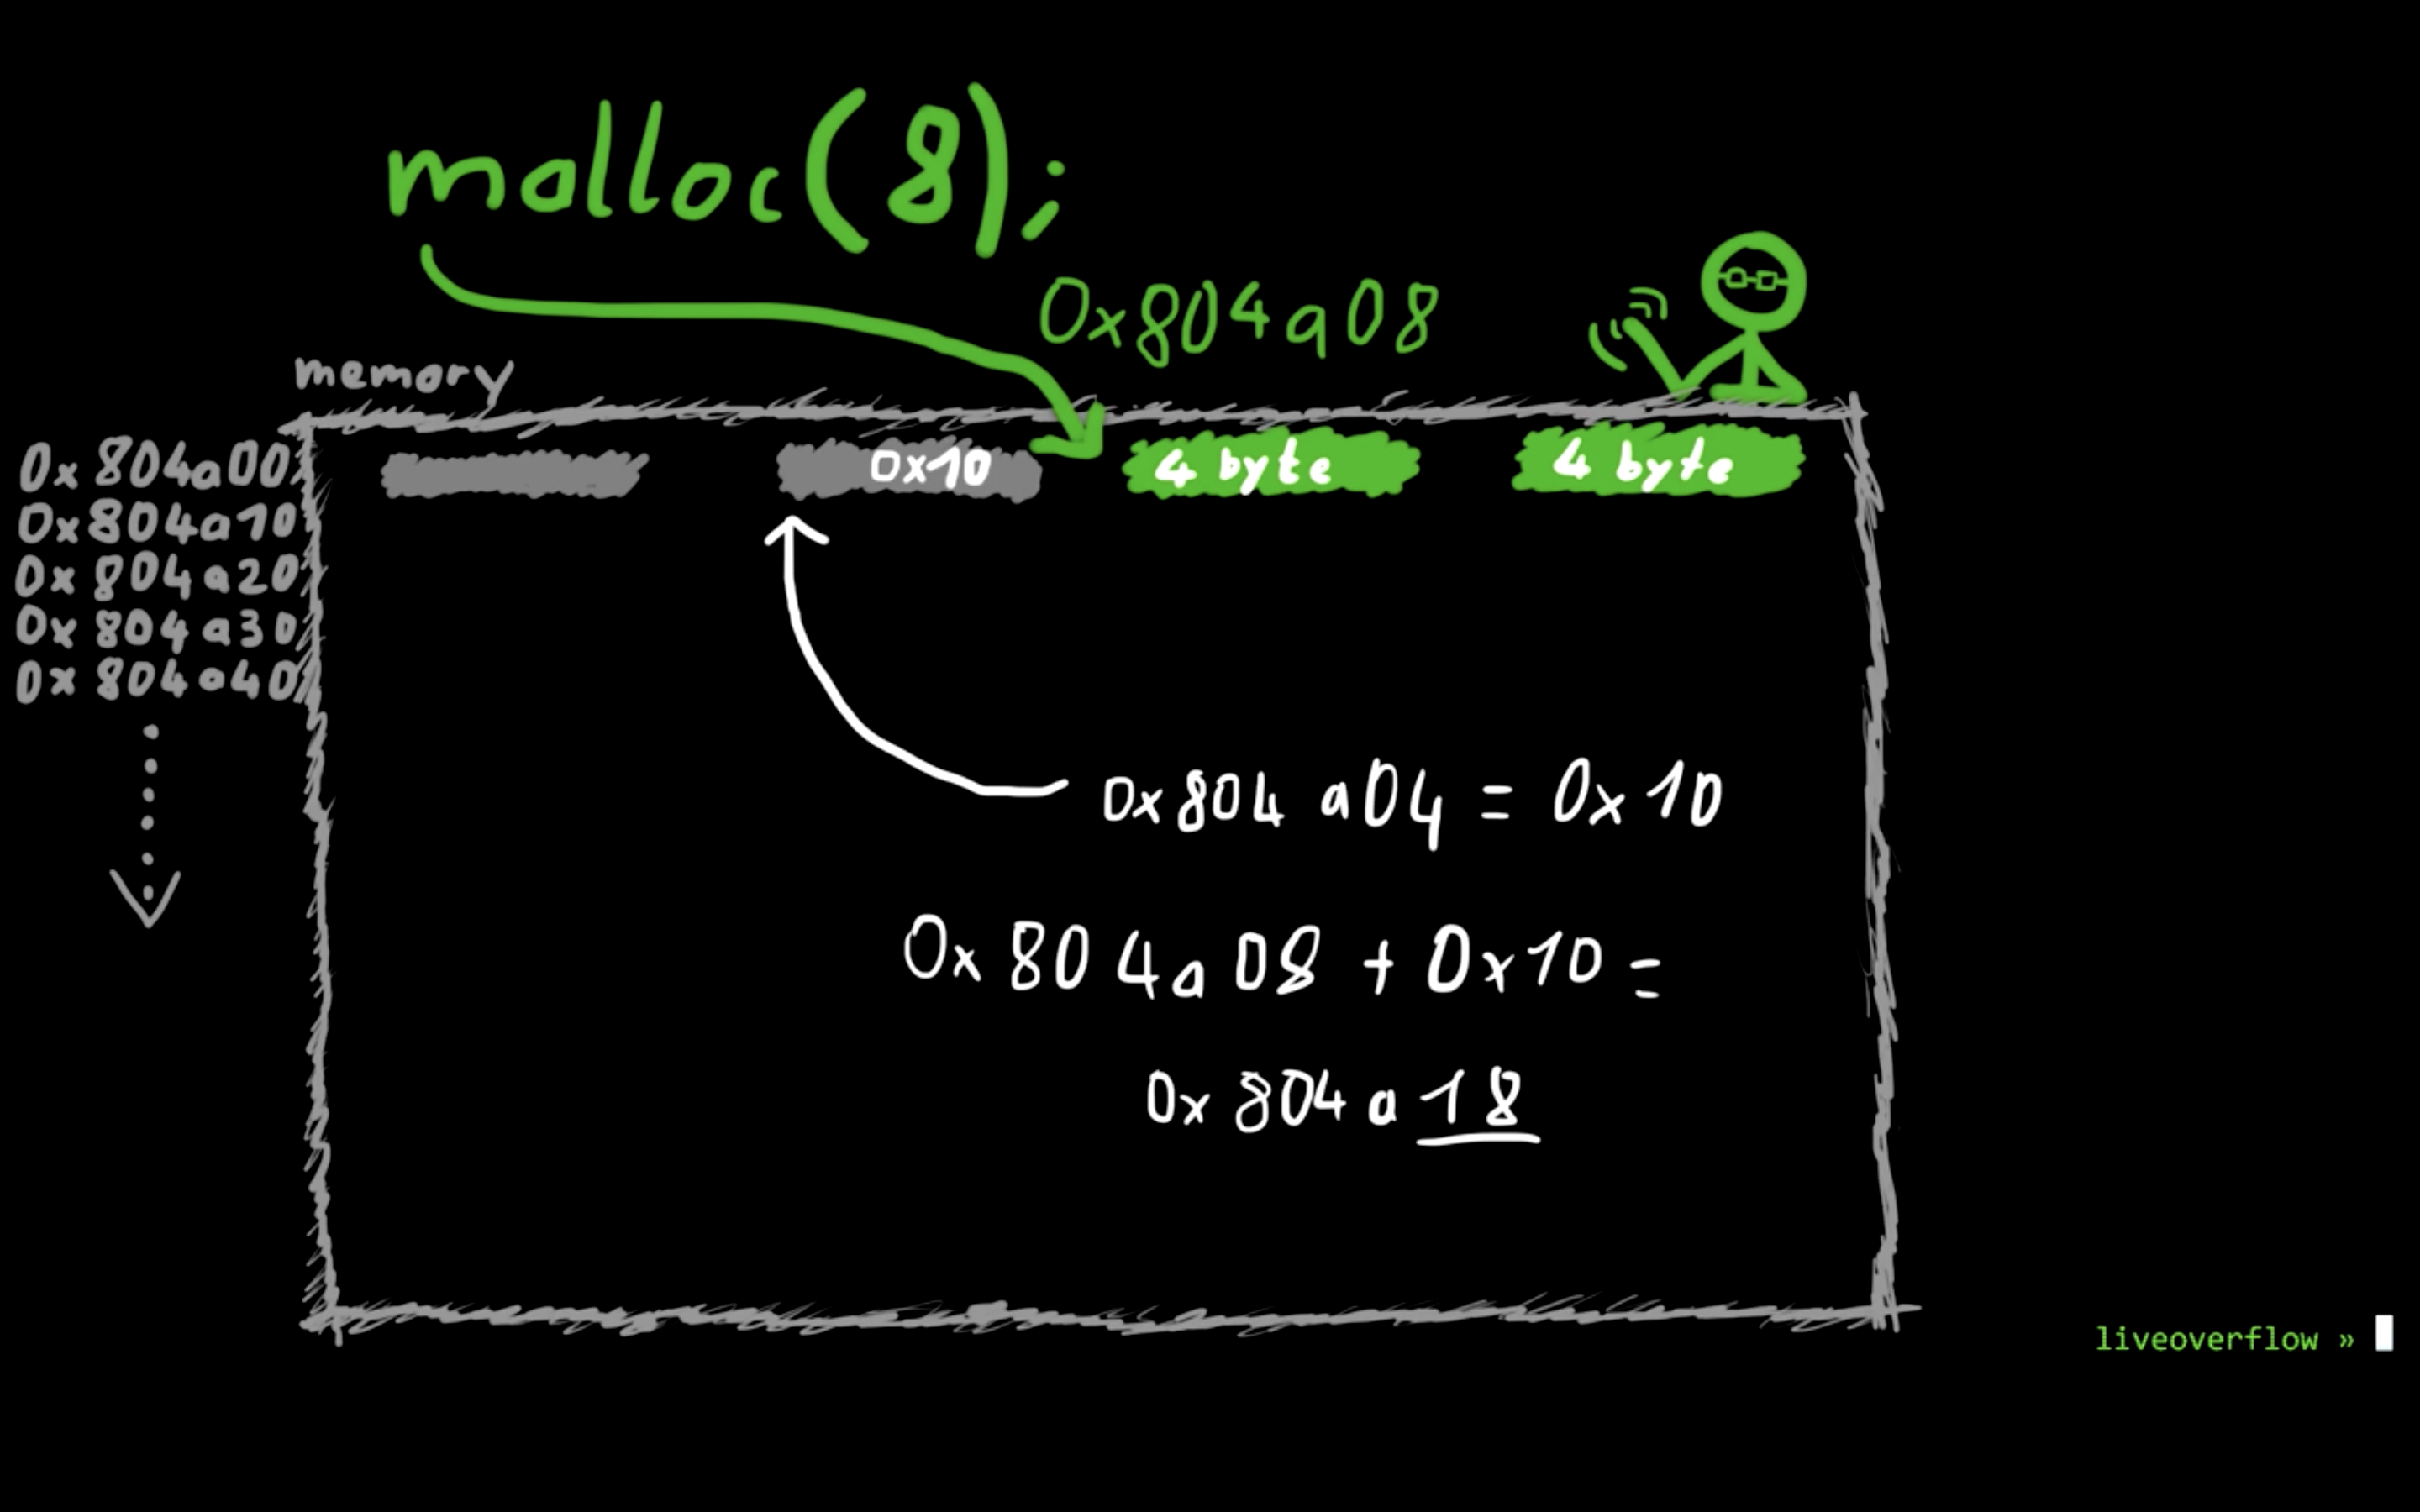 malloc(8);
0x804a08
memory
0x804a00
0x10
4 byte
4 byte
0x804a10
0x804a20
0x804a30
0x804a40
0x804a04 = 0x10
0x804a08 + 0x10 =
0x804a18
liveoverflow »